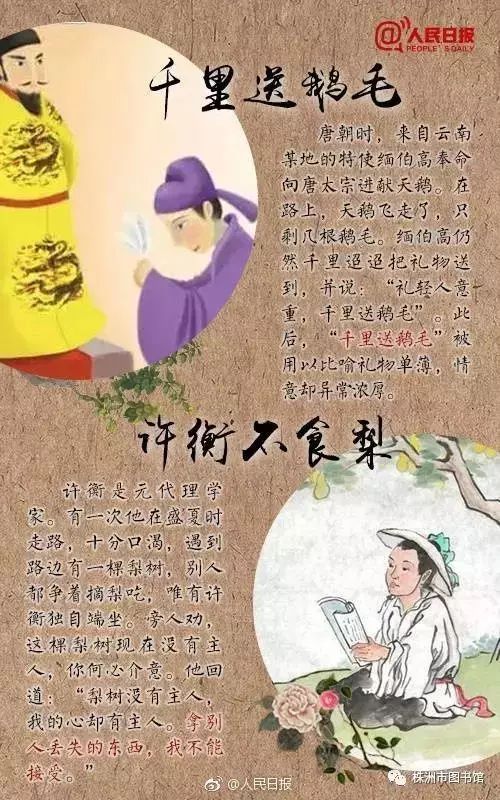 @人民日报
PEOPLE'S DAILY
千里送鹅毛
唐朝时，来自云南
某地的特使缅伯高奉命
向唐太宗进献天鹅。在
路上，天鹅飞走了，只
剩几根鹅毛。缅伯高仍
然千里迢迢把礼物送
到，并说：“礼轻人意
重，千里送鹅毛”。此
后，“千里送鹅毛”被
用以比喻礼物单薄，情
意却异常浓厚。
许衡不食梨
许衡是元代理学
家。有一次他在盛夏时
走路，十分口渴，遇到
路边有一棵梨树，别人
都争着摘梨吃，唯有许
衡独自端坐。旁人劝，
这棵梨树现在没有主
人，你何必介意。他回
道：“梨树没有主人，
我的心却有主人。拿别
人丢失的东西，我不能
接受。”
@人民日报
株洲市图书馆